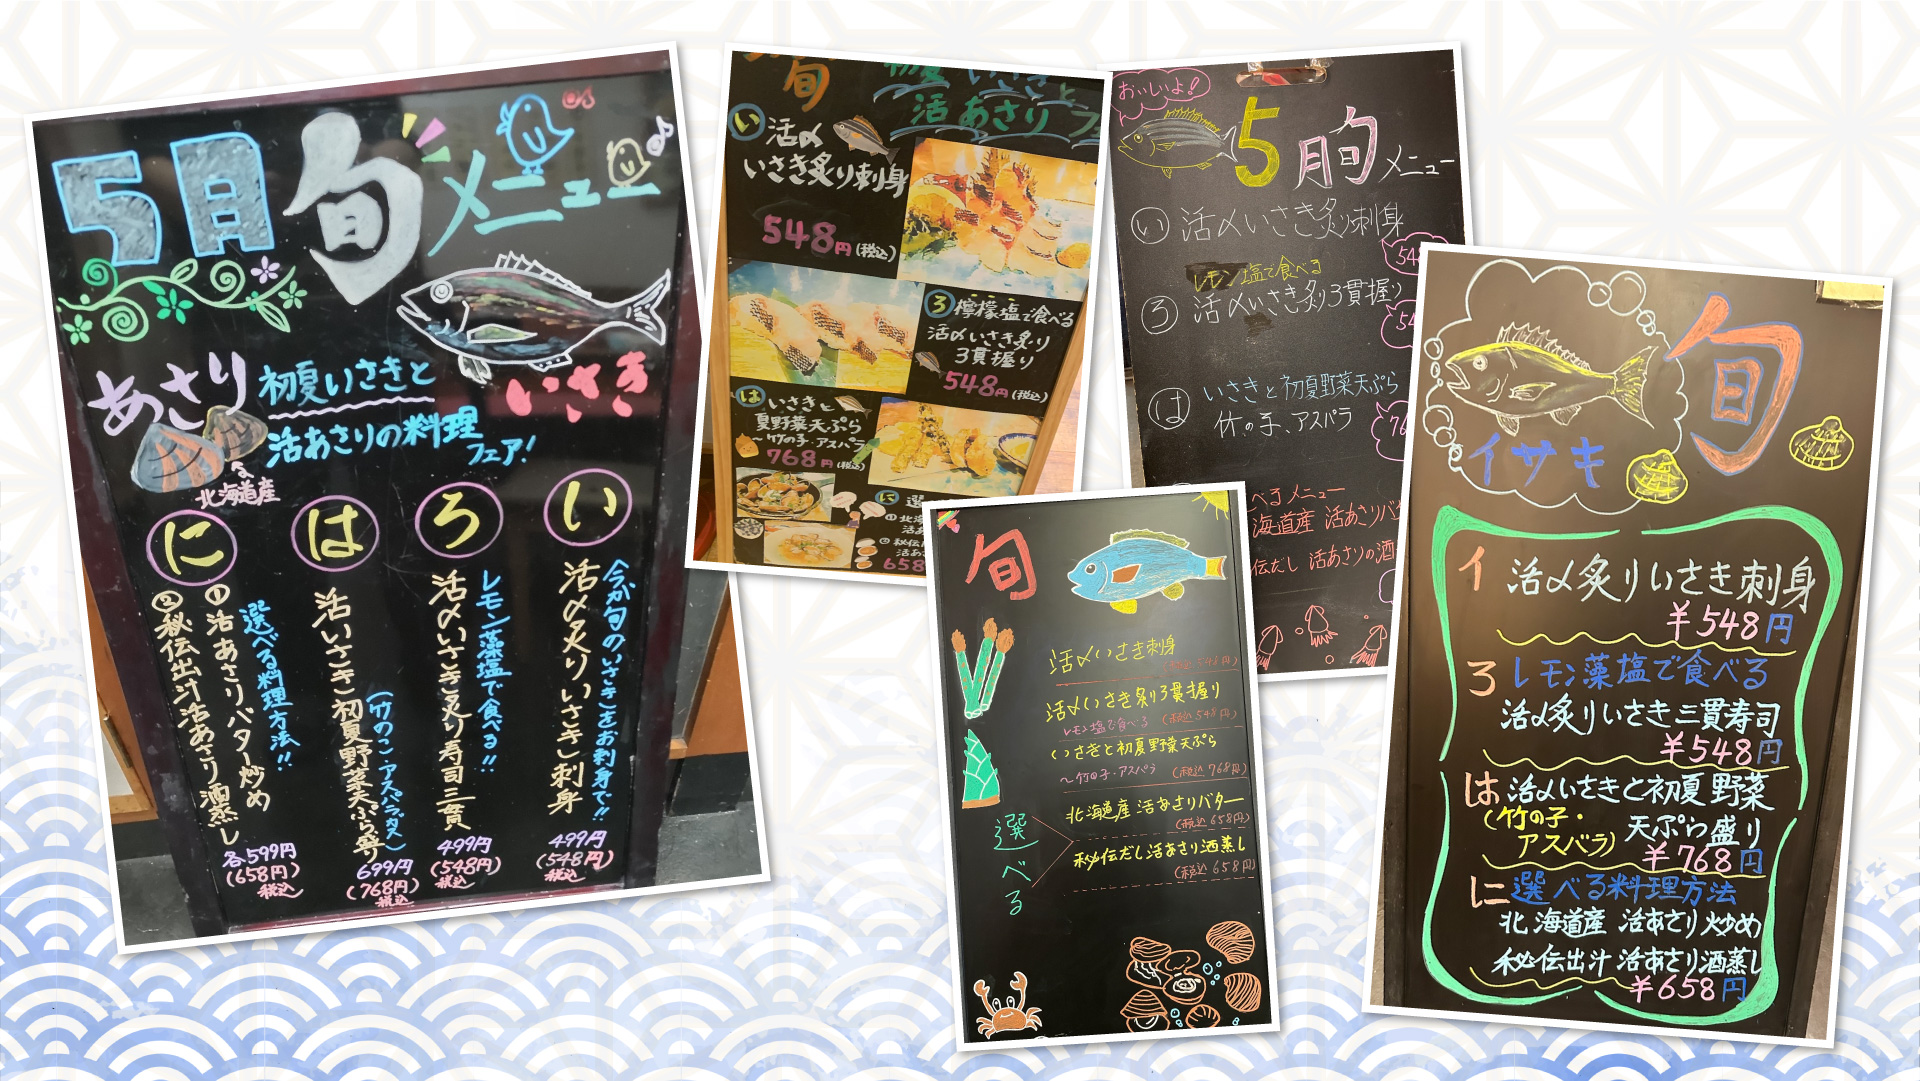 5月旬メニュー
あさり
いさき
初夏いさきと
活あさりの料理
フェア!
北海道産
い
今が旬のいさきをお刺身で!!
活〆炙りいさき刺身
499円
(548円)
税込
ろ
レモン藻塩で食べる!!
活〆いさき炙り寿司三貫
499円
(548円)
税込
は
活いさき初夏野菜天ぷら盛り
(竹のこ・アスパラガス)
699円
(768円)
税込
に
選べる料理方法!!
①活あさりバター炒め
②秘伝出汁活あさり酒蒸し
各599円
(658円)
税込
旬
初夏いさきと
活あさりフ
い 活〆
いさき炙り刺身
548円(税込)
ろ 檸檬塩で食べる
活〆いさき炙り
3貫握り
548円(税込)
は いさきと
夏野菜天ぷら
〜竹の子・アスパラ
768円(税込)
に 選
①北海
活あ
②秘伝
活あ
658
おいしいよ!
5月旬メニュー
い 活〆いさき炙り刺身
548
レモン塩で食べる
ろ 活〆いさき炙り3貫握り
54
は いさきと初夏野菜天ぷら
竹の子、アスパラ
76
べるメニュー
海道産 活あさりバタ
伝だし 活あさりの酒
旬
活〆いさき刺身
(税込548円)
活〆いさき炙り3貫握り
レモン塩で食べる (税込548円)
いさきと初夏野菜天ぷら
〜竹の子・アスパラ (税込768円)
選べる
北海道産 活あさりバター
(税込658円)
秘伝だし活あさり酒蒸し
(税込658円)
旬
イサキ
イ 活〆炙りいさき刺身
¥548円
ろ レモン藻塩で食べる
活〆炙りいさき三貫寿司
¥548円
は 活〆いさきと初夏野菜
(竹の子・
アスパラ)
天ぷら盛り
¥768円
に 選べる料理方法
北海道産 活あさり炒め
秘伝出汁 活あさり酒蒸し
¥658円